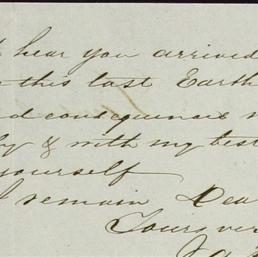 hear you arrived
this last Earth
d consequences
& with my best
yourself
I remain Dea
Yours ver